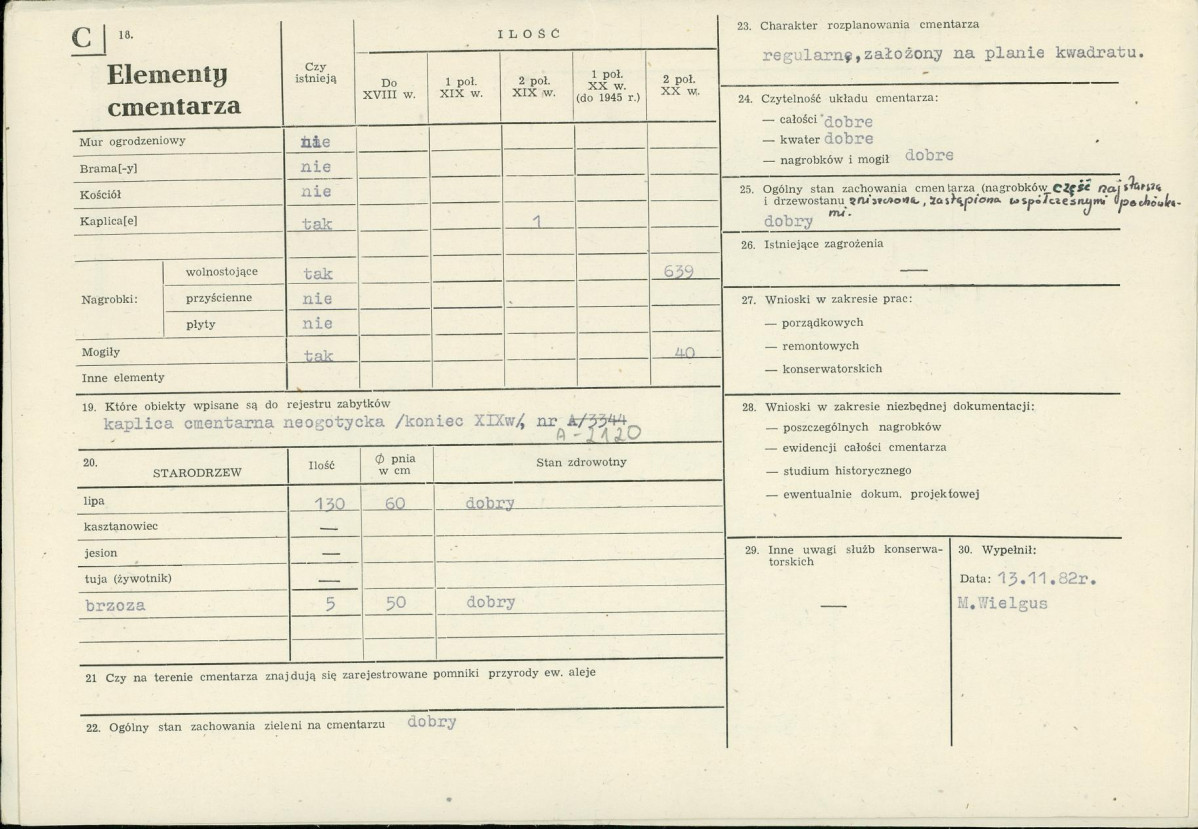 C 18.
Elementy
cmentarza
Czy
istnieją
ILOŚĆ
Do
XVIII w.
1 poł.
XIX w.
2 poł.
XIX w.
1 poł.
XX w.
(do 1945 r.)
2 poł.
XX w.
Mur ogrodzeniowy nie
Brama[-y] nie
Kościół nie
Kaplica[e] tak 1
Nagrobki:
wolnostojące tak 639
przyścienne nie
płyty nie
Mogiły tak 40
Inne elementy
19. Które obiekty wpisane są do rejestru zabytków
kaplica cmentarna neogotycka /koniec XIXw/, nr A/3344
A-2120
20.
STARODRZEW
Ilość
Ø pnia
w cm
Stan zdrowotny
lipa 130 60 dobry
kasztanowiec —
jesion —
tuja (żywotnik) —
brzoza 5 50 dobry
21 Czy na terenie cmentarza znajdują się zarejestrowane pomniki przyrody ew. aleje
22. Ogólny stan zachowania zieleni na cmentarzu dobry
23. Charakter rozplanowania cmentarza
regularne,założony na planie kwadratu.
24. Czytelność układu cmentarza:
— całości dobre
— kwater dobre
— nagrobków i mogił dobre
25. Ogólny stan zachowania cmentarza (nagrobków część najstarsza
i drzewostanu zniszczona, zastąpiona współczesnymi pochówka-
mi.
dobry
26. Istniejące zagrożenia
—
27. Wnioski w zakresie prac:
— porządkowych
— remontowych
— konserwatorskich
28. Wnioski w zakresie niezbędnej dokumentacji:
— poszczególnych nagrobków
— ewidencji całości cmentarza
— studium historycznego
— ewentualnie dokum. projektowej
29. Inne uwagi służb konserwa-
torskich
—
30. Wypełnił:
Data: 13.11.82r.
M.Wielgus